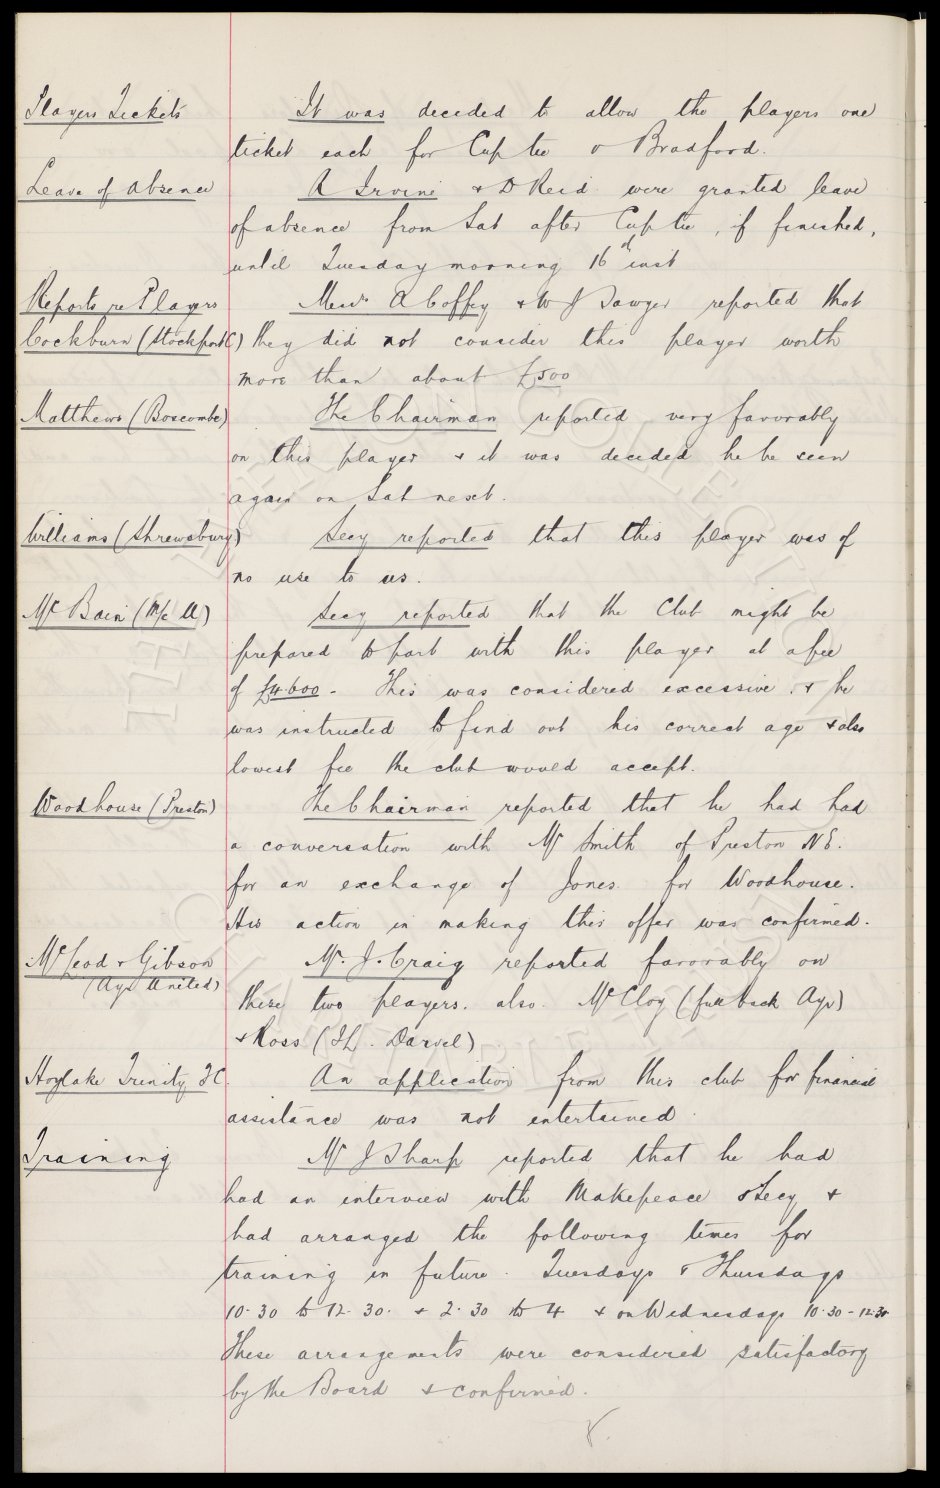 Players Tickets
It was decided to allow the players one
ticket each for Cup tie v Bradford.
Leave of absence
A Irvine & D Reid were granted leave
of absence from Sat after Cup tie, if finished,
until Tuesday morning 16th inst
Reports re Players
Messrs A Coffey & W J Sawyer reported that
Cockburn (Stockport C)
they did not consider this player worth
more than about £500
Matthews (Boscombe)
The Chairman reported very favorably
on this player & it was decided he be seen
again on Sat next.
Williams (Shrewsbury)
Secy reported that this player was of
no use to us.
Mc Bain (M/c U)
Secy reported that the Club might be
prepared to part with this player at a fee
of £4600 - This was considered excessive, & he
was instructed to find out his correct age & also
lowest fee the club would accept.
Woodhouse (Preston)
The Chairman reported that he had had
a conversation with Mr Smith of Preston N E.
for an exchange of Jones for Woodhouse.
His action in making this offer was confirmed.
McLeod & Gibson
(Ayr United)
Mr. J. Craig reported favorably on
these two players. also. McCloy (full back Ayr)
& Ross (Darvel)
Hoylake Trinity F C.
An application from this club for financial
assistance was not entertained.
Training
Mr J Sharp reported that he had
had an interview with Makepeace & Secy &
had arranged the following times for
training in future. Tuesdays & Thursdays
10.30 to 12.30. & 2.30 to 4 & on Wednesdays 10.30 - 12.30
These arrangements were considered satisfactory
by the Board & confirmed.
THE EVERTON COLLECTION